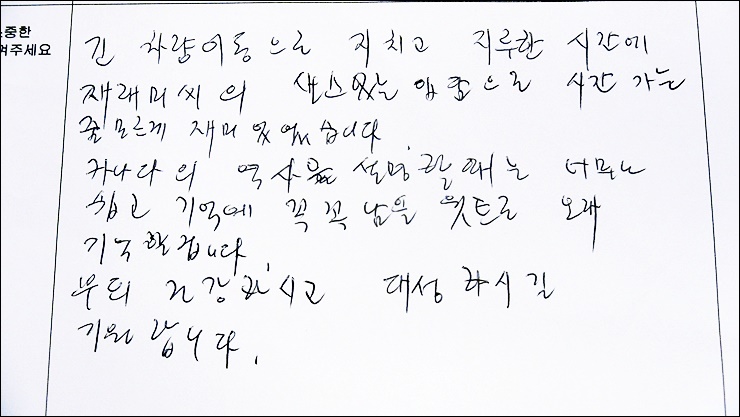 소중한
여주세요
긴 차량이동으로 지치고 지루한 시간에
재래미씨의 센스있는 입담으로 시간 가는
줄 모르게 재미 있었습니다.
카나다의 역사를 설명할때는 너무나
쉽고 기억에 꼭꼭 남을 윗트로 오래
기억할겁니다.
부디 건강하시고 대성하시길
기원합니다.